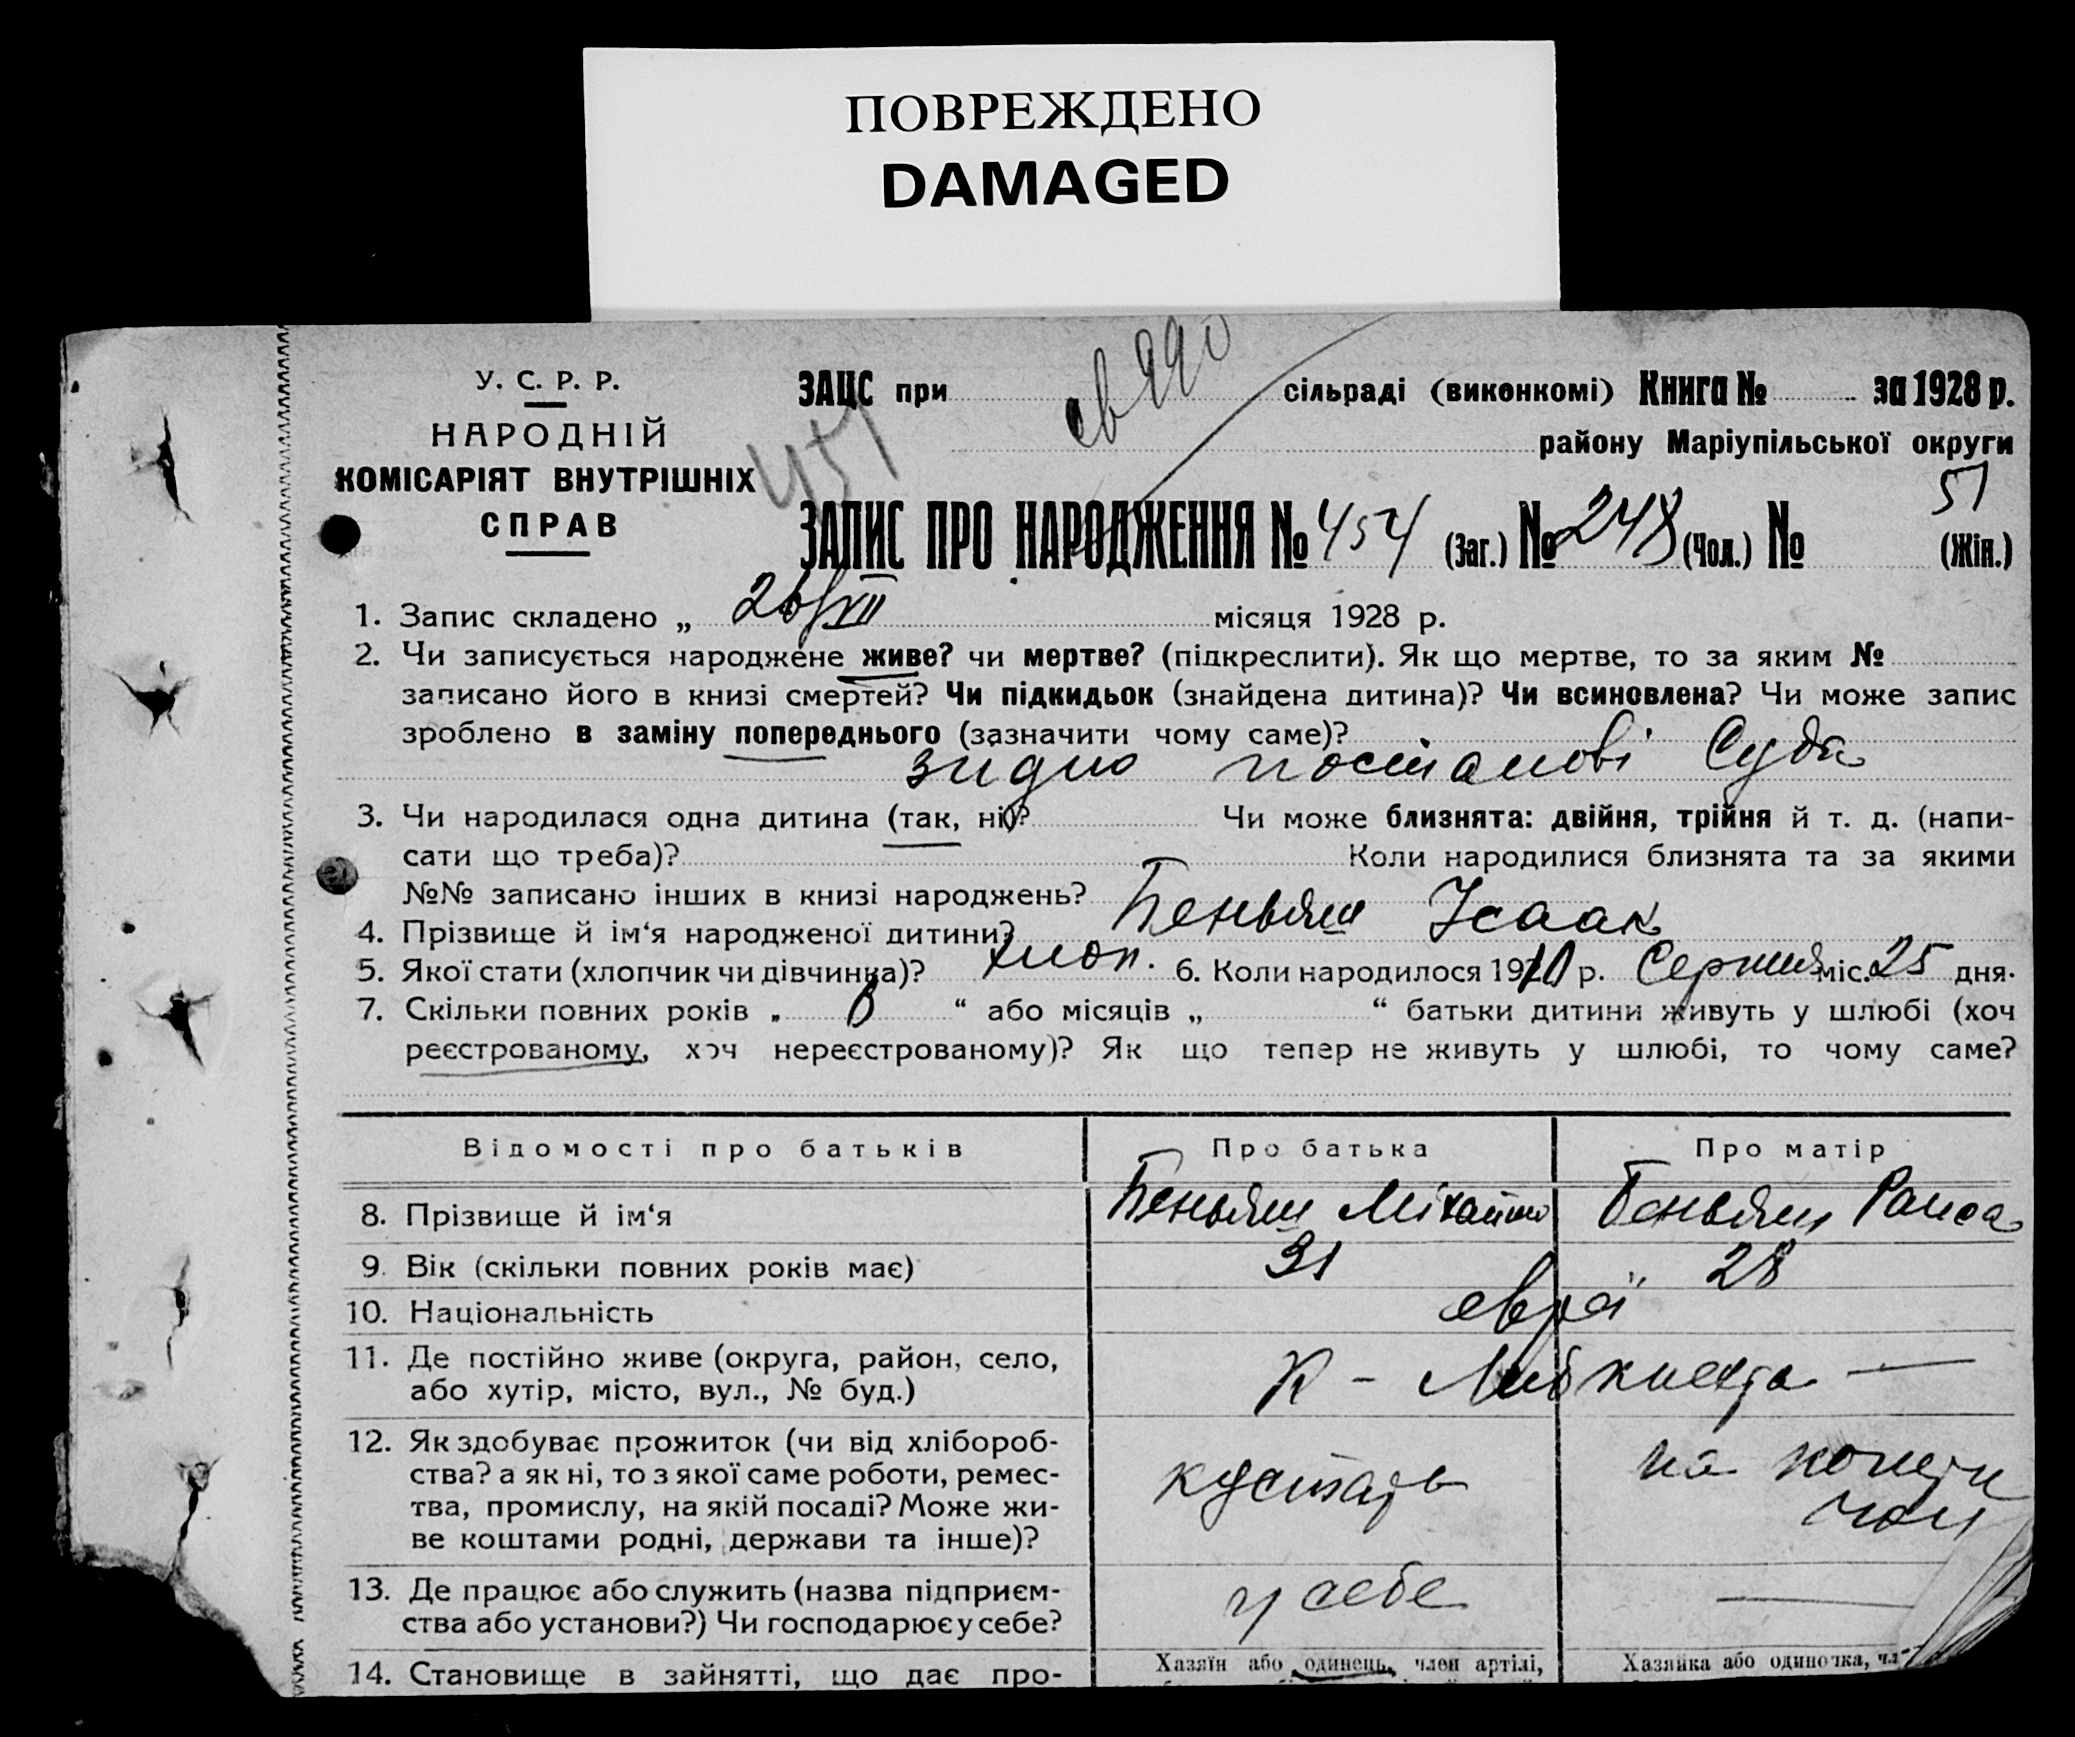 ПОВРЕЖДЕНО
DAMAGED
У. С. Р. Р.
НАРОДНІЙ
КОМІСАРІЯТ ВНУТРІШНІХ
СПРАВ
ЗАЦС при сільраді (виконкомі) Книга № за 1928 р.
району Маріупільської округи
451
51
ЗАПИС ПРО НАРОДЖЕННЯ № 454 (Заг.) № 248 (Чол.) № (Жін.)
1. Запис складено „ 26/XII місяця 1928 р.
2. Чи записується народжене живе? чи мертве? (підкреслити). Як що мертве, то за яким №
записано його в книзі смертей? Чи підкидьок (знайдена дитина)? Чи всиновлена? Чи може запис
зроблено в заміну попереднього (зазначити чому саме)?
згідно постанові Суда
3. Чи народилася одна дитина (так, ні)? Чи може близнята: двійня, трійня й т. д. (напи-
сати що треба)? Коли народилися близнята та за якими
№№ записано інших в книзі народжень?
4. Прізвище й ім‘я народженої дитини? Беньямин Ісаак
5. Якої стати (хлопчик чи дівчинка)? хлоп. 6. Коли народилося 1920 р. Серпня міс. 25 дня.
7. Скільки повних років „ 8 “ або місяців „ “ батьки дитини живуть у шлюбі (хоч
реєстрованому, хоч нереєстрованому)? Як що тепер не живуть у шлюбі, то чому саме?
Відомості про батьків Про батька Про матір
8. Прізвище й ім‘я Беньямин Міхайло Беньямин Раиса
9. Вік (скільки повних років має) 31 28
10. Національність евреї
11. Де постійно живе (округа, район, село,
або хутір, місто, вул., № буд.) К - Либкнехта —
12. Як здобуває прожиток (чи від хлібороб-
ства? а як ні, то з якої саме роботи, ремес-
тва, промислу, на якій посаді? Може жи-
ве коштами родні, держави та інше)?
кустарь
на
13. Де працює або служить (назва підприєм-
ства або установи?) Чи господарює у себе?
у себе —
14. Становище в зайнятті, що дає про-
Хазяїн або одинець, член артілі,
Хазяйка або одиночка, чл-